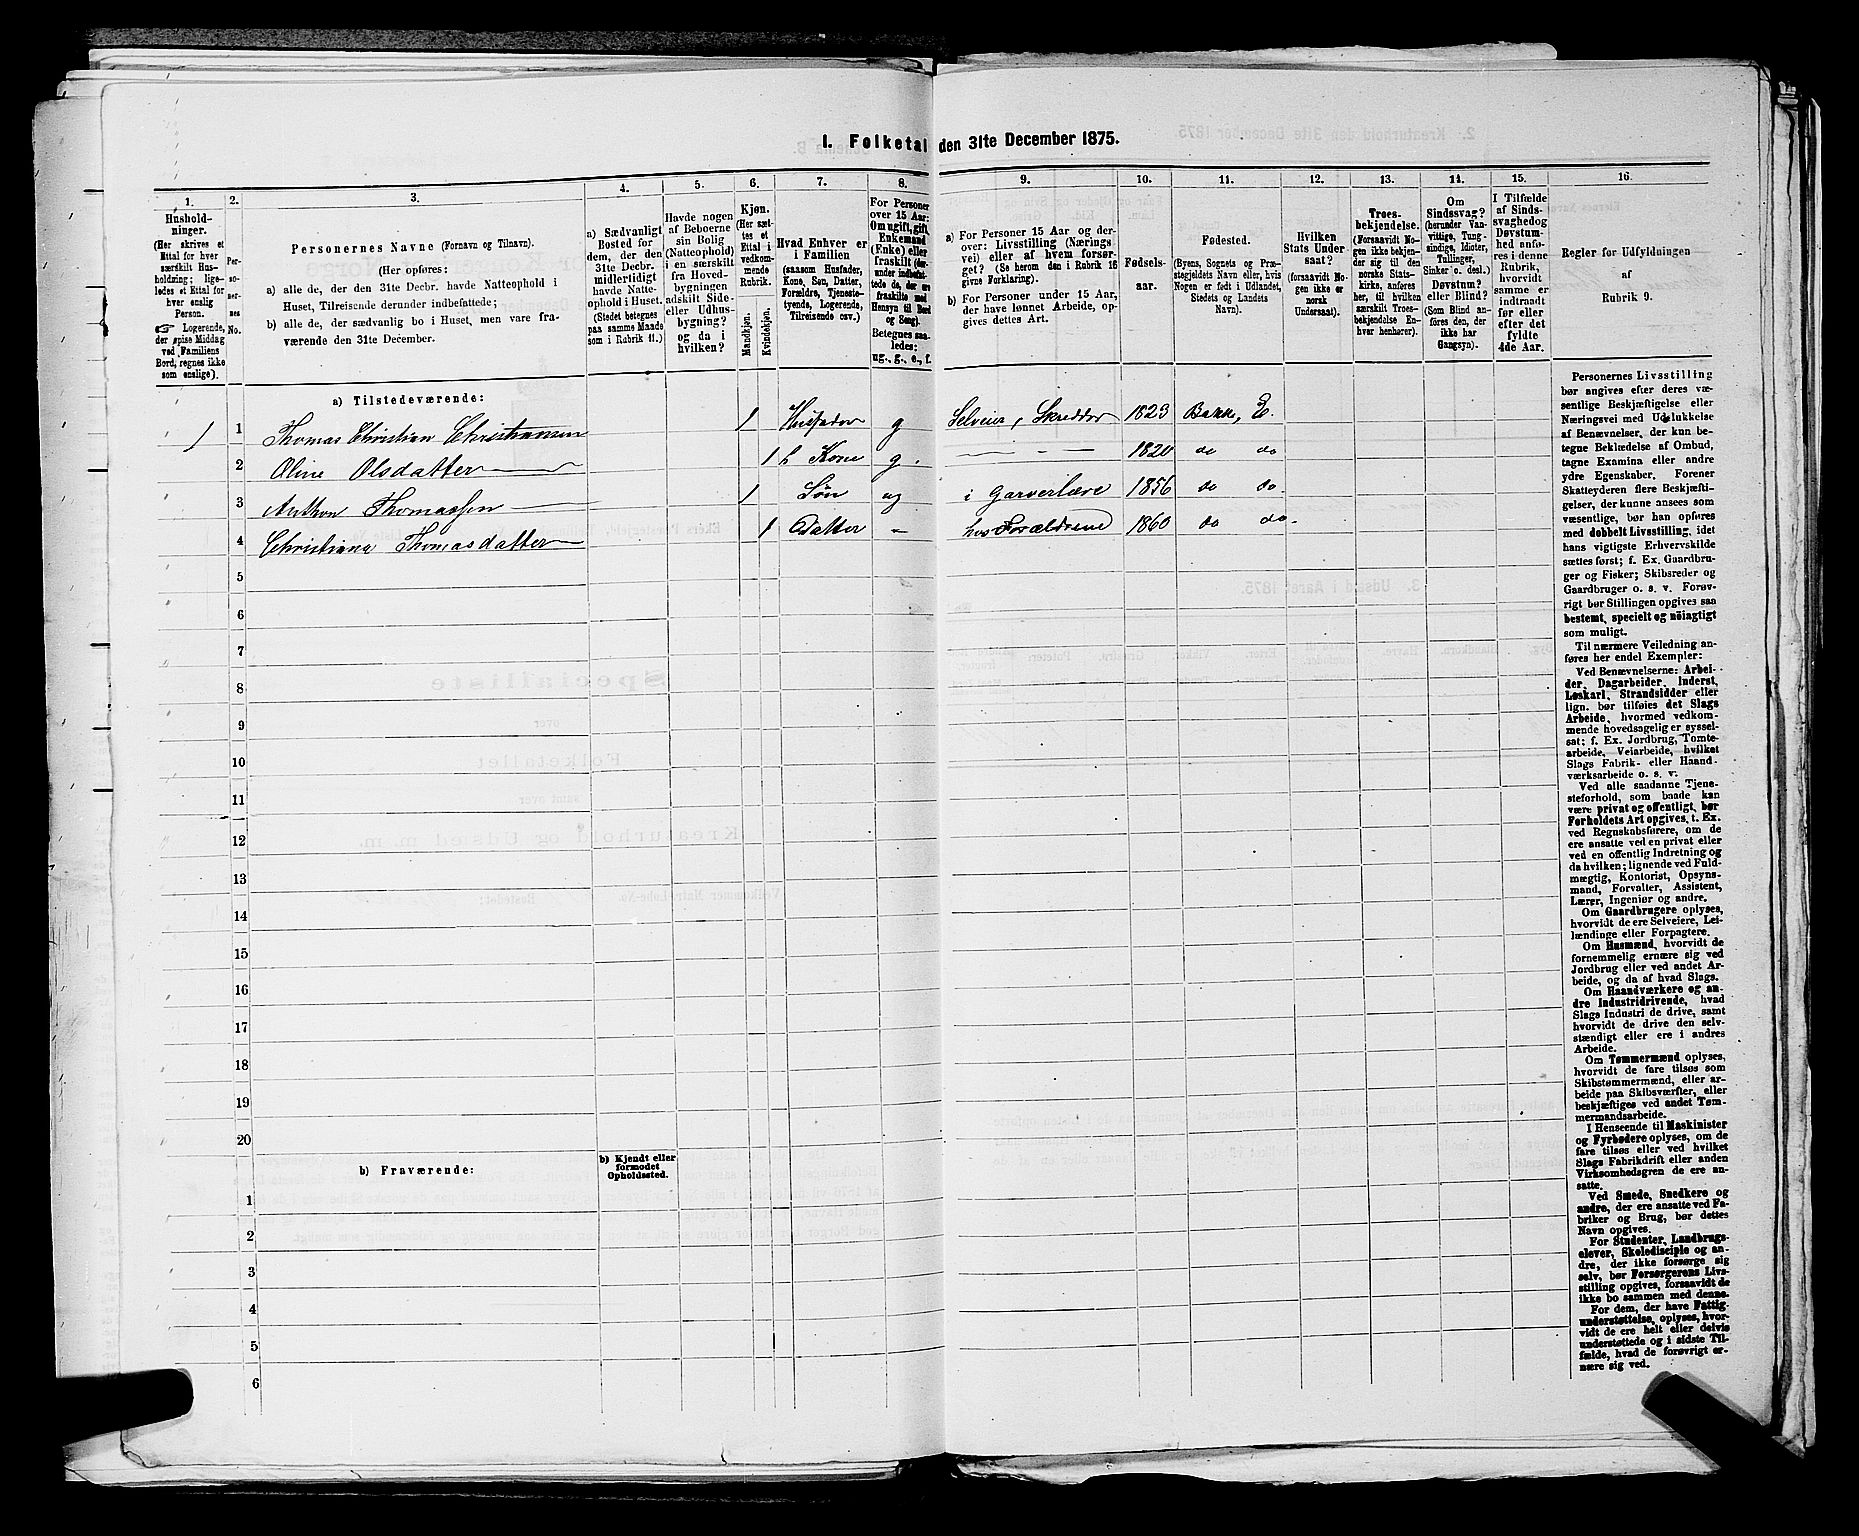 1. Folketal den 31te December 1875.
1.
2.
3.
4.
5.
6.
7.
8.
9.
10.
11.
12.
13.
14.
15.
16.
Hushold-
ninger.
(Her skrives et
Ettal for hver
særskilt Hus-
holdning; lige-
ledes et Ettal for
hver enslig
Person.
☞ Logerende,
der spise Middag
ved Familiens
Bord, regnes ikke
som enslige).
Per-
so-
ner-
nes
No.
Personernes Navne (Fornavn og Tilnavn).
(Her opføres:
a) alle de, der den 31te Decbr. havde Natteophold i
Huset, Tilreisende derunder indbefattede;
b) alle de, der sædvanlig bo i Huset, men vare fra-
værende den 31te December.
a) Sædvanligt
Bosted for
dem, der den
31te Decbr.
midlertidigt
havde Natte-
ophold i Huset.
(Stedet betegnes
paa samme Maade
som i Rubrik 11.)
Havde nogen
af Beboerne
sin Bolig
(Natteophold)
i en særskilt
fra Hoved-
bygningen
adskilt Side-
eller Udhus-
bygning?
og da i
hvilken?
Kjøn.
(Her sæt-
tes et
Ettal i
vedkom-
mende
Rubrik.
Mandkjøn.
Kvindekjøn.
Hvad Enhver er
i Familien
(saasom Husfader,
Kone, Søn, Datter,
Forældre, Tjeneste-
tyende, Logerende,
Tilreisende osv.)
For Personer
over 15 Aar:
Om ugift, gift,
Enkemand
(Enke) eller
fraskilt (der-
under indbefat-
tede de, der ere
fraskilte med
Hensyn til Bord
og Seng).
Betegnes saa-
ledes:
ug., g., e., f.
a) For Personer 15 Aar og der-
over: Livsstilling (Nærings-
vei) eller af hvem forsør-
get? (Se herom den i Rubrik 16
givne Forklaring).
b) For Personer under 15 Aar,
der have lønnet Arbeide, op-
gives dettes Art.
Fødsels-
aar.
Fødested.
(Byens, Sognets og Præ-
stegjeldets Navn eller, hvis
Nogen er født i Udlandet,
Stedets og Landets
Navn).
Hvilken
Stats Under-
saat?
(forsaavidt No-
gen ikke er
norsk
Undersaat).
Troes-
bekjendelse.
(Forsaavidt No-
gen ikke bekjen-
der sig til den
norske Stats-
kirke, anføres
her, til hvilken
særskilt Troes-
bekjendelse En-
hver henhører).
Om
Sindssvag?
(herunder Van-
vittige, Tung-
sindige, Idioter,
Tullinger,
Sinker o. desl.)
Døvstum?
eller Blind?
(Som Blind an-
føres den, der
ikke har
Gangsyn).
I Tilfælde
af Sinds-
svaghed og
Døvstum-
hed anfø-
res i denne
Rubrik,
hvorvidt
samme er
indtraadt
før eller
efter det
fyldte
4de Aar.
Regler for Udfyldningen
af
Rubrik 9.
a) Tilstedeværende:
1 1 Thomas Christian Christiansen 1 Husfader g Selveier, Skredder 1823 Bakke, E.
2 Oline Olsdatter 1 h Kone g. — - — 1820 do do
3 Anthon Thomassen 1 Søn ug i Garverlære 1856 do do
4 Christiane Thomasdatter 1 Datter - hos Forældrene 1860 do do.
5
6
7
8
9
10
11
12
13
14
15
16
17
18
19
20
b) Fraværende:
b) Kjendt eller
formodet
Opholdssted.
1
2
3
4
5
6
Personernes Livsstilling
bør angives efter deres væ-
sentlige Beskjæftigelse eller
Næringsvei med Udelukkelse
af Benævnelser, der kun be-
tegne Beklædelse af Ombud,
tagne Examina eller andre
ydre Egenskaber. Forener
Skatteyderen flere Beskjæfti-
gelser, der kunne ansees som
væsentlige, bør han opføres
med dobbelt Livsstilling, idet
hans vigtigste Erhvervskilde
sættes først; f. Ex. Gaardbru-
ger og Fisker; Skibsreder og
Gaardbruger o. s. v. Forøv-
rigt bør Stillingen opgives saa
bestemt, specielt og nöiagtigt
som muligt.
Til nærmere Veiledning an-
føres her endel Exempler:
Ved Benævnelserne: Arbei-
der, Dagarbeider, Inderst,
Løskarl, Strandsidder eller
lign. bør tilføies det Slags
Arbeide, hvormed vedkom-
mende hovedsagelig er syssel-
sat; f. Ex. Jordbrug, Tomte-
arbeide, Veiarbeide, hvilket
Slags Fabrik- eller Haand-
værksarbeide o. s. v.
Ved alle saadanne Tjene-
steforhold, som baade kan
være privat og offentligt, bør
Forholdets Art opgives, t. Ex.
ved Regnskabsførere, om de
ere ansatte ved en privat eller
ved en offentlig Indretning og
da hvilken; lignende ved Fuld-
mægtig, Kontorist, Opsyns-
mand, Forvalter, Assistent,
Lærer, Ingeniør og andre.
Om Gaardbrugere oplyses,
hvorvidt de ere Selveiere, Lei-
lændinge eller Forpagtere.
Om Husmænd, hvorvidt de
fornemmelig ernære sig ved
Jordbrug eller ved andet Ar-
beide, og da af hvad Slags.
Om Haandværkere og an-
dre Industridrivende, hvad
Slags Industri de drive, samt
hvorvidt de drive den selv-
stændigt eller ere i andres
Arbeide.
Om Tømmermænd oplyses,
hvorvidt de fare tilsøs som
Skibstømmermænd, eller ar-
beide paa Skibsværfter, eller
beskjæftiges ved andet Tøm-
mermandsarbeide.
I Henseende til Maskinister
og Fyrbødere oplyses, om de
fare tilsøs eller ved hvilket
Slags Fabrikdrift eller anden
Virksomhedsgren de ere an-
satte.
Ved Smede, Snedkere og
andre, der ere ansatte ved Fa-
briker og Brug, bør dettes
Navn opgives.
For Studenter, Landbrugs-
elever, Skoledisciple og an-
dre, der ikke forsørge sig
selv, bør Forsørgerens Livs-
stilling opgives, forsaavidt de
ikke bo sammen med denne.
For dem, der have Fattig-
understøttelse, oplyses, hvor-
vidt de ere helt eller delvis
understøttede og i sidste Til-
fælde, hvad de forøvrigt er-
nære sig ved.